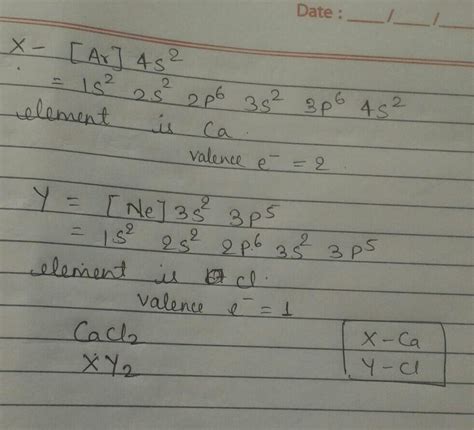 Date : ___/___/___
X - [Ar] 4s²
= 1s² 2s² 2p⁶ 3s² 3p⁶ 4s²
element is Ca.
valence e⁻ = 2.
Y = [Ne] 3s² 3p⁵
= 1s² 2s² 2p⁶ 3s² 3p⁵
element is Cl.
valence e⁻ = 1
CaCl₂
XY₂
X - Ca
Y - Cl